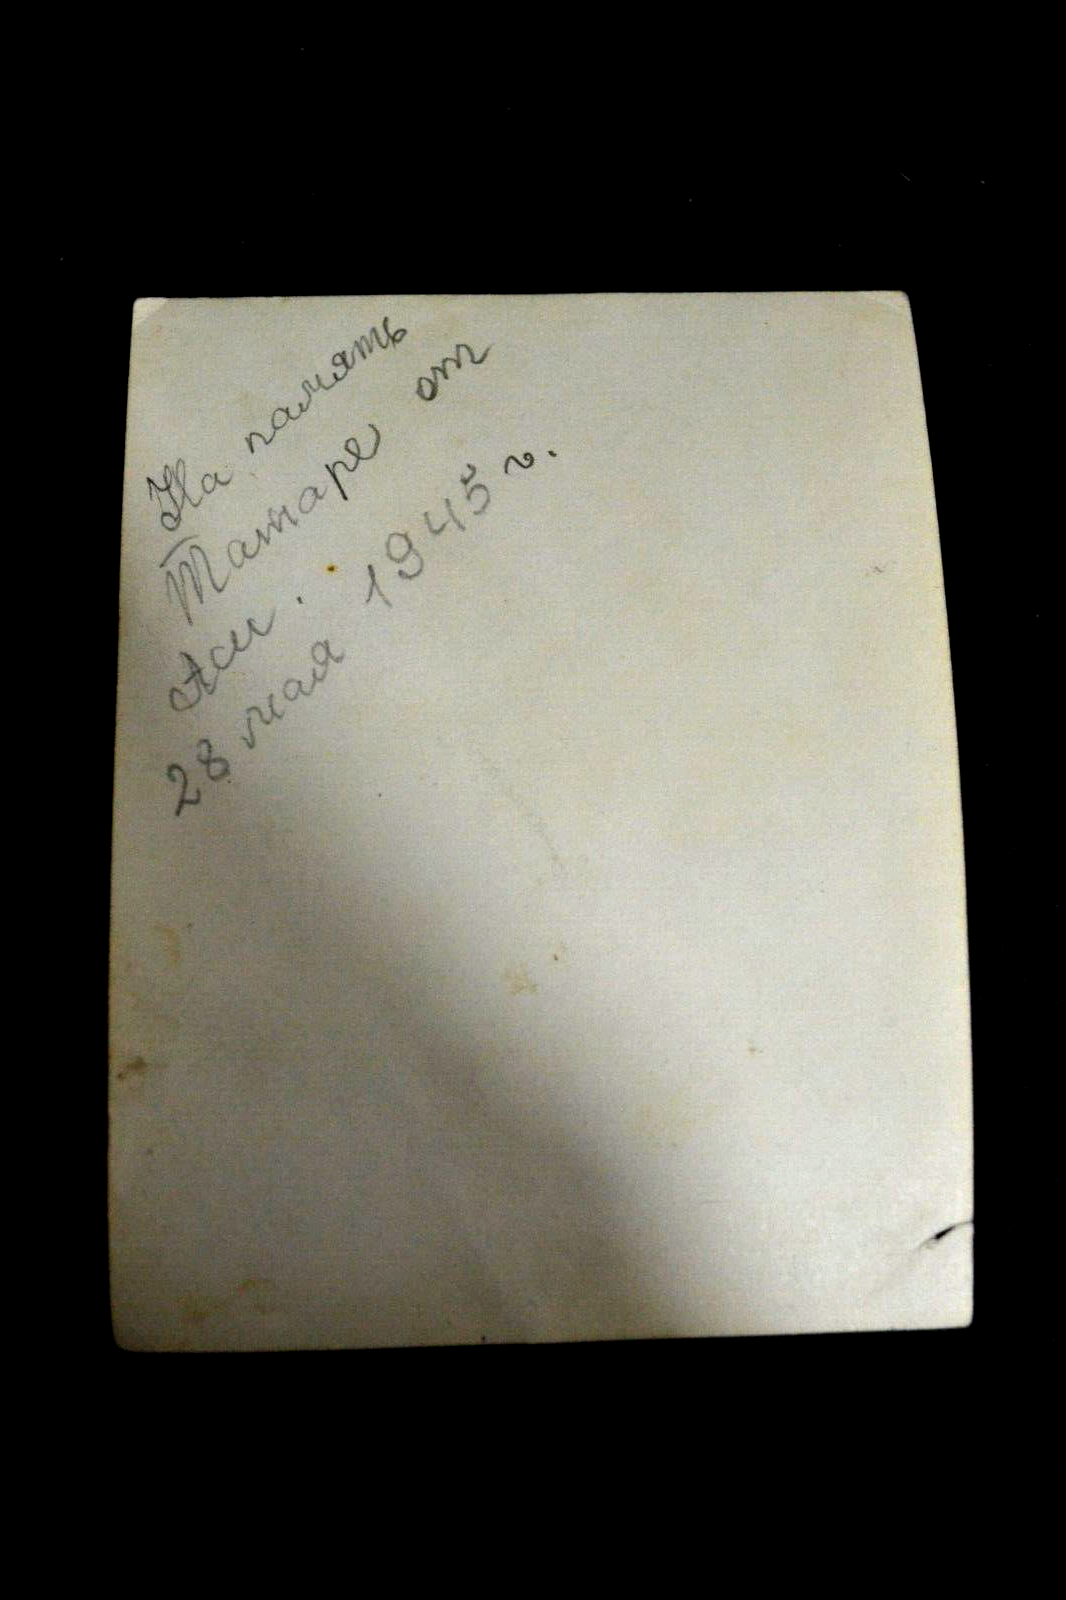 На память
Татаре от
Аси.
28 мая 1945 г.